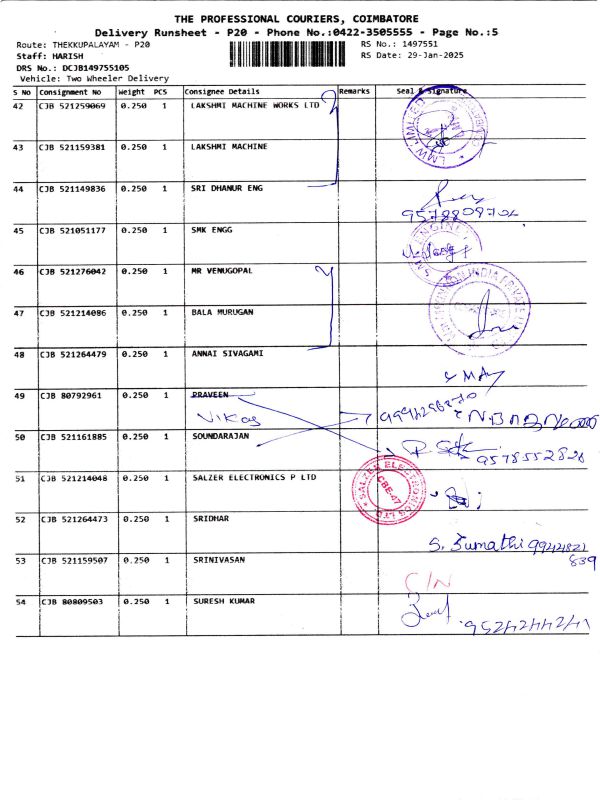 THE PROFESSIONAL COURIERS, COIMBATORE
Delivery Runsheet - P20 - Phone No.:0422-3505555 - Page No.:5
Route: THEKKUPALAYAM - P20
RS No.: 1497551
Staff: HARISH
RS Date: 29-Jan-2025
DRS No.: DCJB149755105
Vehicle: Two Wheeler Delivery
S No Consignment No Weight PCS Consignee Details Remarks Seal & Signature
42 CJB 521259069 0.250 1 LAKSHMI MACHINE WORKS LTD
LMW LIMITED
43 CJB 521159381 0.250 1 LAKSHMI MACHINE
44 CJB 521149836 0.250 1 SRI DHANUR ENG
9578808702
45 CJB 521051177 0.250 1 SMK ENGG
46 CJB 521276042 0.250 1 MR VENUGOPAL
47 CJB 521214086 0.250 1 BALA MURUGAN
48 CJB 521264479 0.250 1 ANNAI SIVAGAMI
49 CJB 80792961 0.250 1 PRAVEEN
Vikas
50 CJB 521161885 0.250 1 SOUNDARAJAN
9578552828
51 CJB 521214048 0.250 1 SALZER ELECTRONICS P LTD
SALZER ELECTRONICS LTD
CBE-47
52 CJB 521264473 0.250 1 SRIDHAR
S. Sumathi 99424821
839
53 CJB 521159507 0.250 1 SRINIVASAN
C/N
54 CJB 80809503 0.250 1 SURESH KUMAR